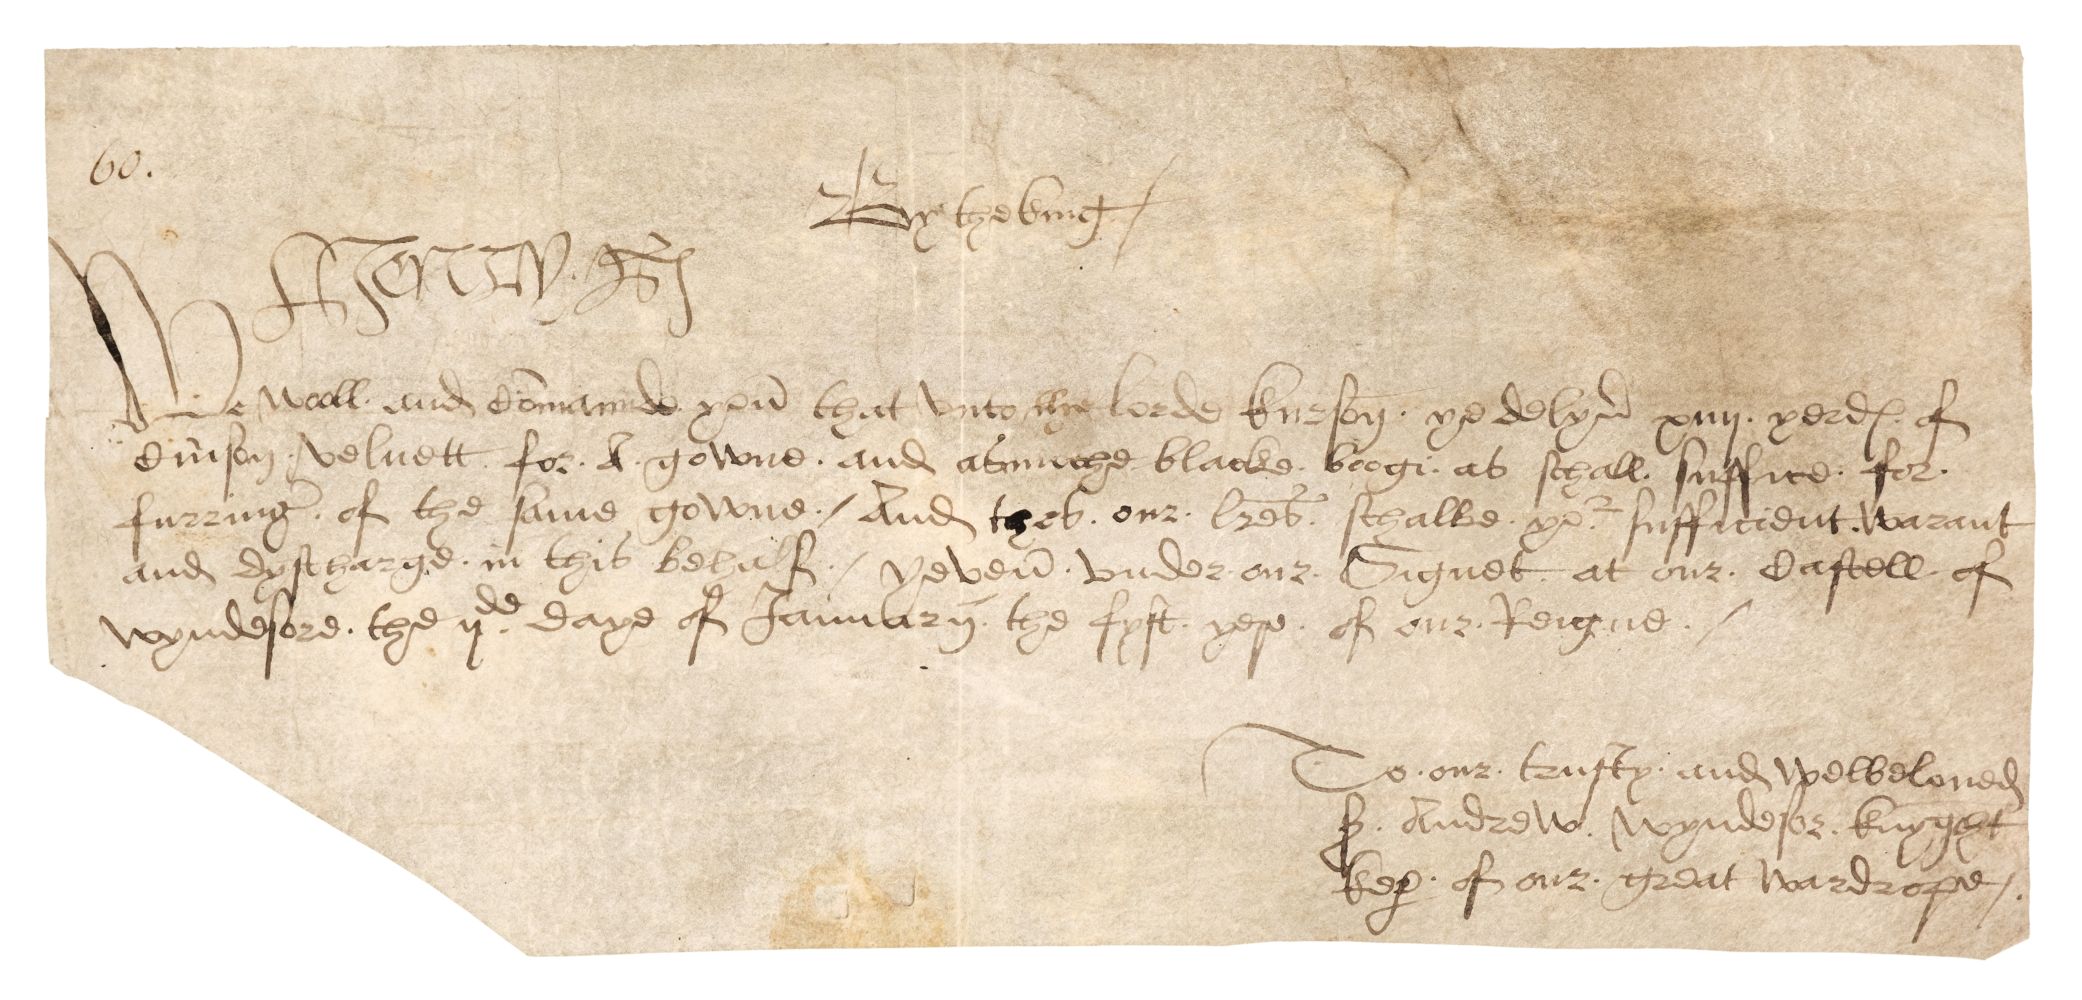 60.
By the king /
Henry R
We woll and com̄aunde you that vnto the lorde kurson ye delyu̾ xiiij yerdꝭ of
crȳson veluett for A gowne and asmuche blacke boogi as schall suffice for
furring of the same gowne / And thes our lr̄es schalbe yor sufficient warant
and dyscharge in this behalf / Yeven̄ vnder our Signet at our Castell of
wyndesore the ijde daye of Januarij the fyft yere of our Reigne /
To our trusty and welbeloued
Sr Andrew wyndesor knyght
kep̱ of our great wardrope /